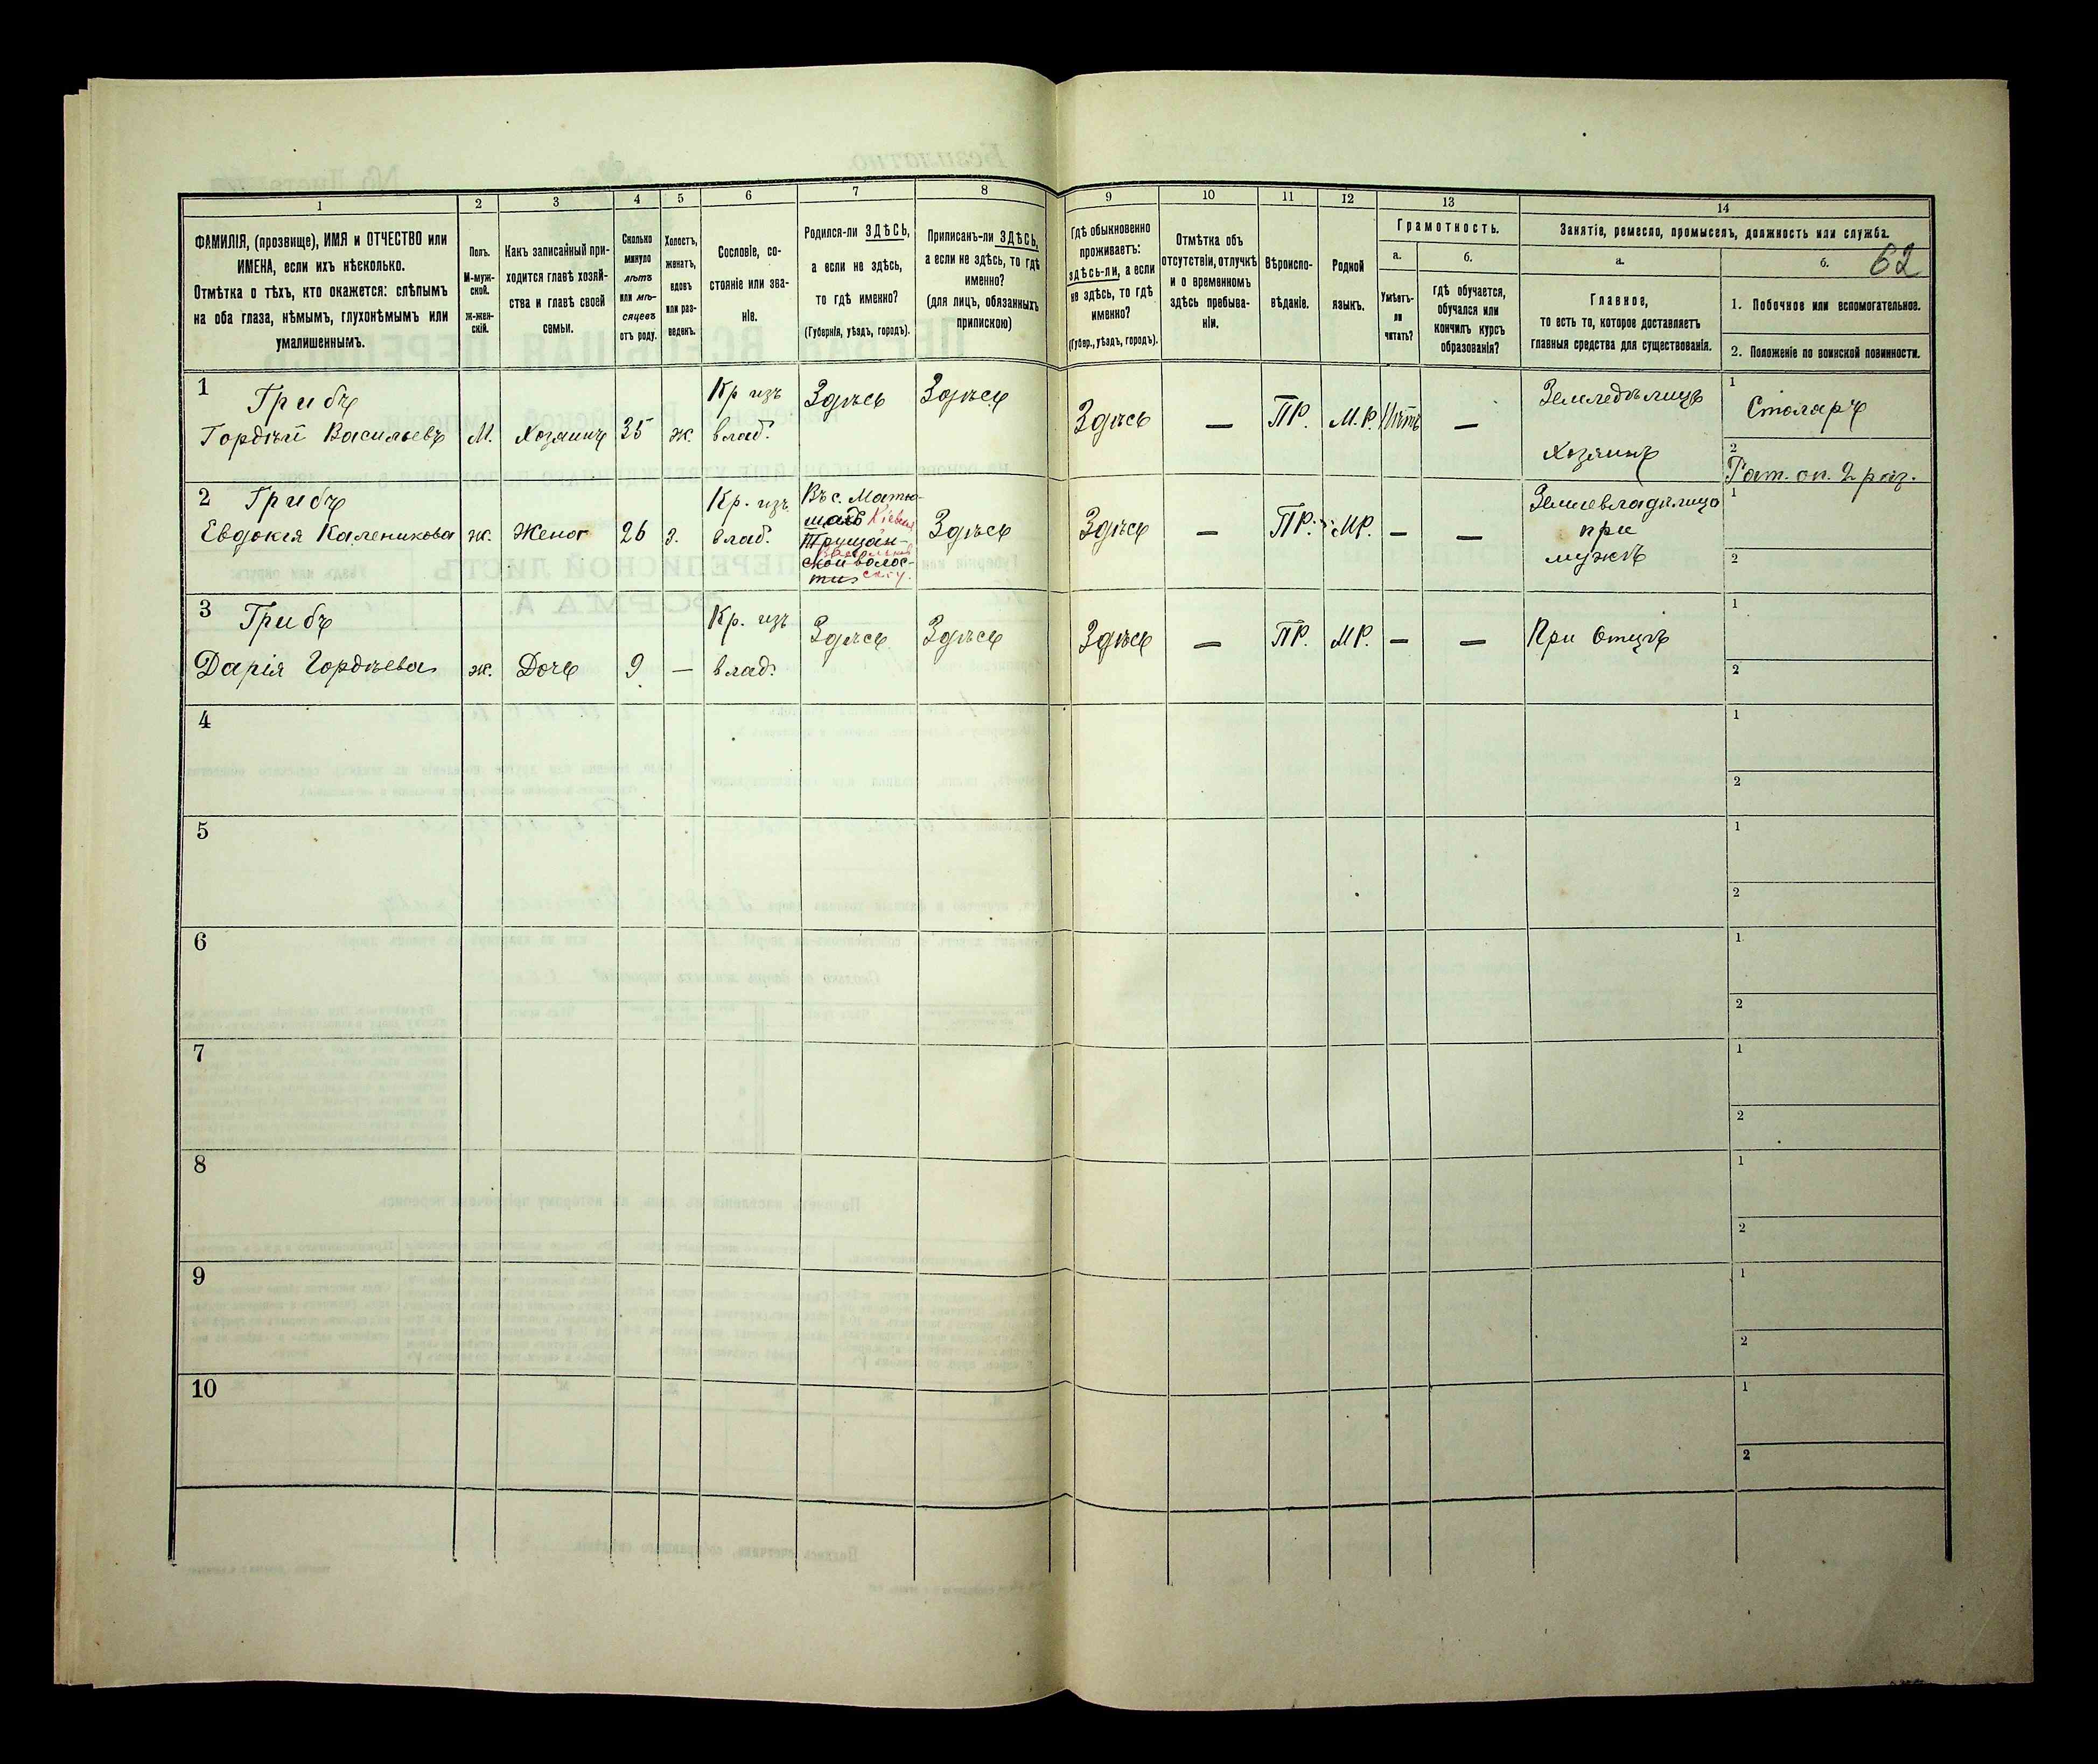 62
1 2 3 4 5 6 7 8 9 10 11 12 13 14
ФАМИЛІЯ, (прозвище), ИМЯ и ОТЧЕСТВО или
ИМЕНА, если ихъ нѣсколько.
Отмѣтка о тѣхъ, кто окажется: слѣпымъ
на оба глаза, нѣмымъ, глухонѣмымъ или
умалишеннымъ.
Полъ.
М-муж-
ской.
ж-жен-
скій.
Какъ записанный при-
ходится главѣ хозяй-
ства и главѣ своей
семьи.
Сколько
минуло
лѣтъ
или мѣ-
сяцевъ
отъ роду.
Холостъ,
женатъ,
вдовъ
или раз-
веденъ.
Сословіе, со-
стояніе или зва-
ніе.
Родился-ли ЗДѢСЬ,
а если не здѣсь,
то гдѣ именно?
(Губернія, уѣздъ, городъ).
Приписанъ-ли ЗДѢСЬ,
а если не здѣсь, то гдѣ
именно?
(для лицъ, обязанныхъ
припискою)
Гдѣ обыкновенно
проживаетъ:
здѣсь-ли, а если
не здѣсь, то гдѣ
именно?
(Губер., уѣздъ, городъ).
Отмѣтка объ
отсутствіи, отлучкѣ
и о временномъ
здѣсь пребыва-
ніи.
Вѣроиспо-
вѣданіе.
Родной
языкъ.
Грамотность.
а.
Умѣетъ-
ли
читать?
б.
гдѣ обучается,
обучался или
кончилъ курсъ
образованія?
Занятіе, ремесло, промыселъ, должность или служба.
а.
Главное,
то есть то, которое доставляетъ
главныя средства для существованія.
б.
1. Побочное или вспомогательное.
2. Положеніе по воинской повинности.
1 Грибъ
Гордѣй Васильевъ М. Хозяинъ 35 ж.
Кр изъ
влад.
Здѣсь Здѣсь Здѣсь — ПР. М.Р. Нѣтъ —
Земледѣлецъ
Хозяинъ
1 Столяръ
2 Рат. оп. 2 раз.
2 Грибъ
Евдокія Каленикова ж. Жена 26 з.
Кр. изъ
влад.
Въ с. Матю-
шахъ Кіевск
Трушан-
ской волос-
ти
Здѣсь Здѣсь — ПР. МР. — —
Землевладѣлица
при
мужѣ
1
2
3 Грибъ
Дарія Гордѣева ж. Дочь 9 —
Кр. изъ
влад.
Здѣсь Здѣсь Здѣсь — ПР. МР. — — При Отцѣ
1
2
4 1
2
5 1
2
6 1
2
7 1
2
8 1
2
9 1
2
10 1
2